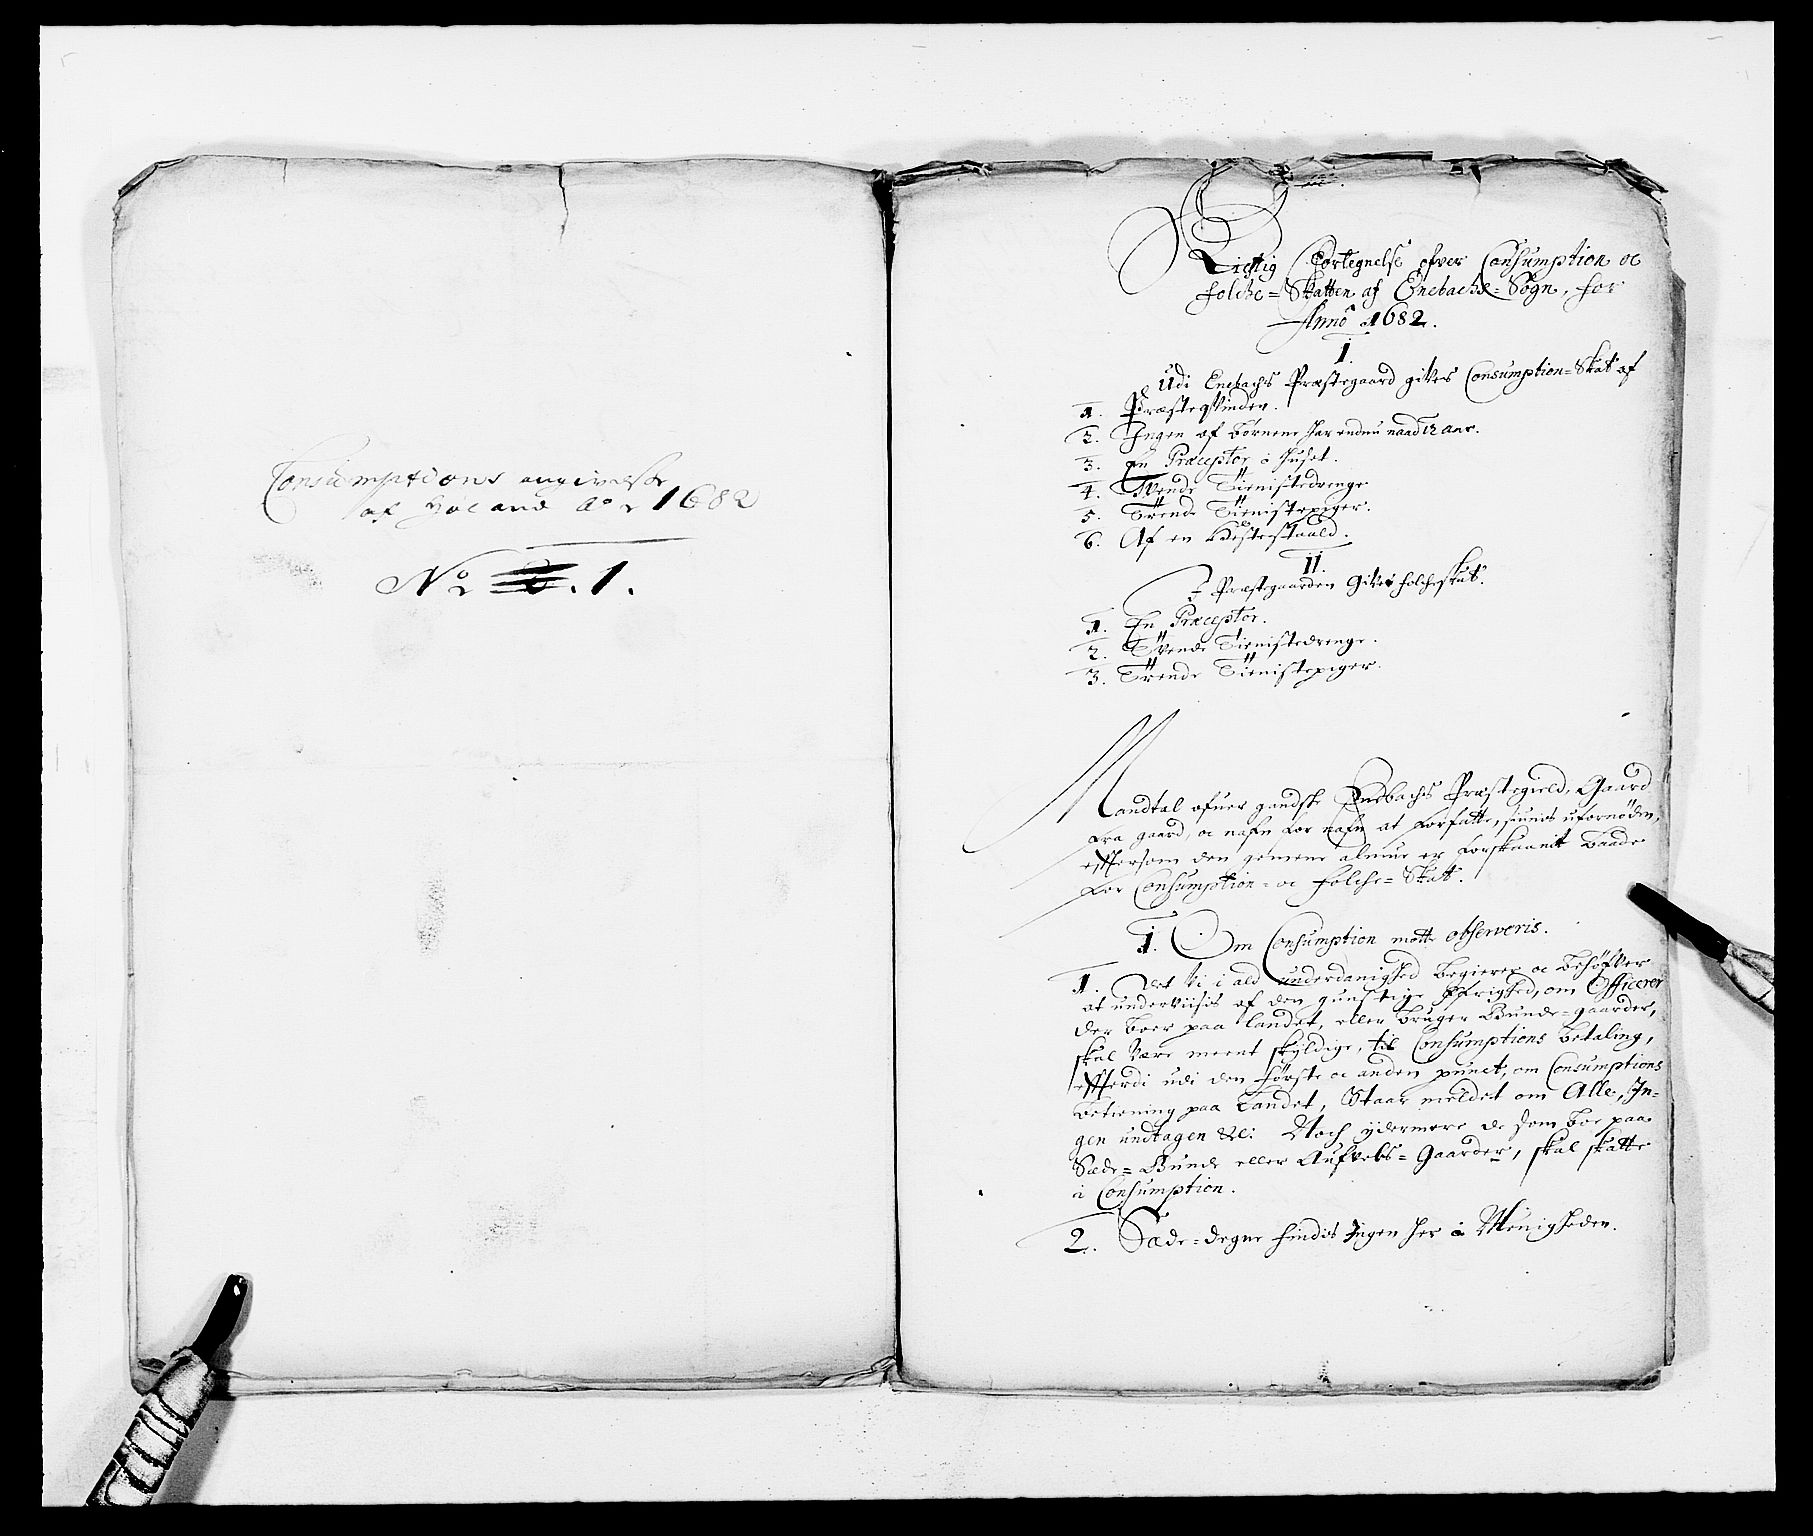 Consumptions angivelse
af Høland Ao 1682
No 1.
Rigtig Fortegnelse ofver Consumption oc
folche=Skatten af Enebachs=Sogn, for
Anno 1682.
I.
Udi Enebachs Præstegaard gives Consumption=Skat af
1. Præsteqvinden.
2. Ingen af børnene har endnu naad 12 aar.
3. En Præceptor i huset.
4. Tvende Tienistedrenge
5. Trende Tienistepiger.
6. Af en Hestestaald.
II.
I Præstegaarden Gives folcheskat.
1. En Præceptor.
2. Tvende Tienistedrenge.
3. Trende Tienistepiger.
Mandtal ofuer gandske Enebachs Præstegield, Gaard
fra gaard, oc nafn for nafn at forfatte, siunes ufornöden,
effersom den gemene almue er forskaanit baade
for Consumption= oc folche=Skatt.
I. Om Consumption motte observeris.
1. Det Vi i ald underdanighed begierer oc behöfver
at underviisis af den gunstige öfrighed, om Officerer
der boer paa landet, eller bruger Bunde=gaarder,
skal Være meent skyldige, til Consumptions betaling,
efferdi udi den förste oc anden punct, om Consumptions
paa Landet, Staar meldet om Alle, In=
gen undtagen &c: Noch ydermere de som boe paa
Sæde= Bunde eller Aufvels=Gaarder, skal skatte
i Consumption.
2. Sæde=degne findes Ingen her i Menigheden.